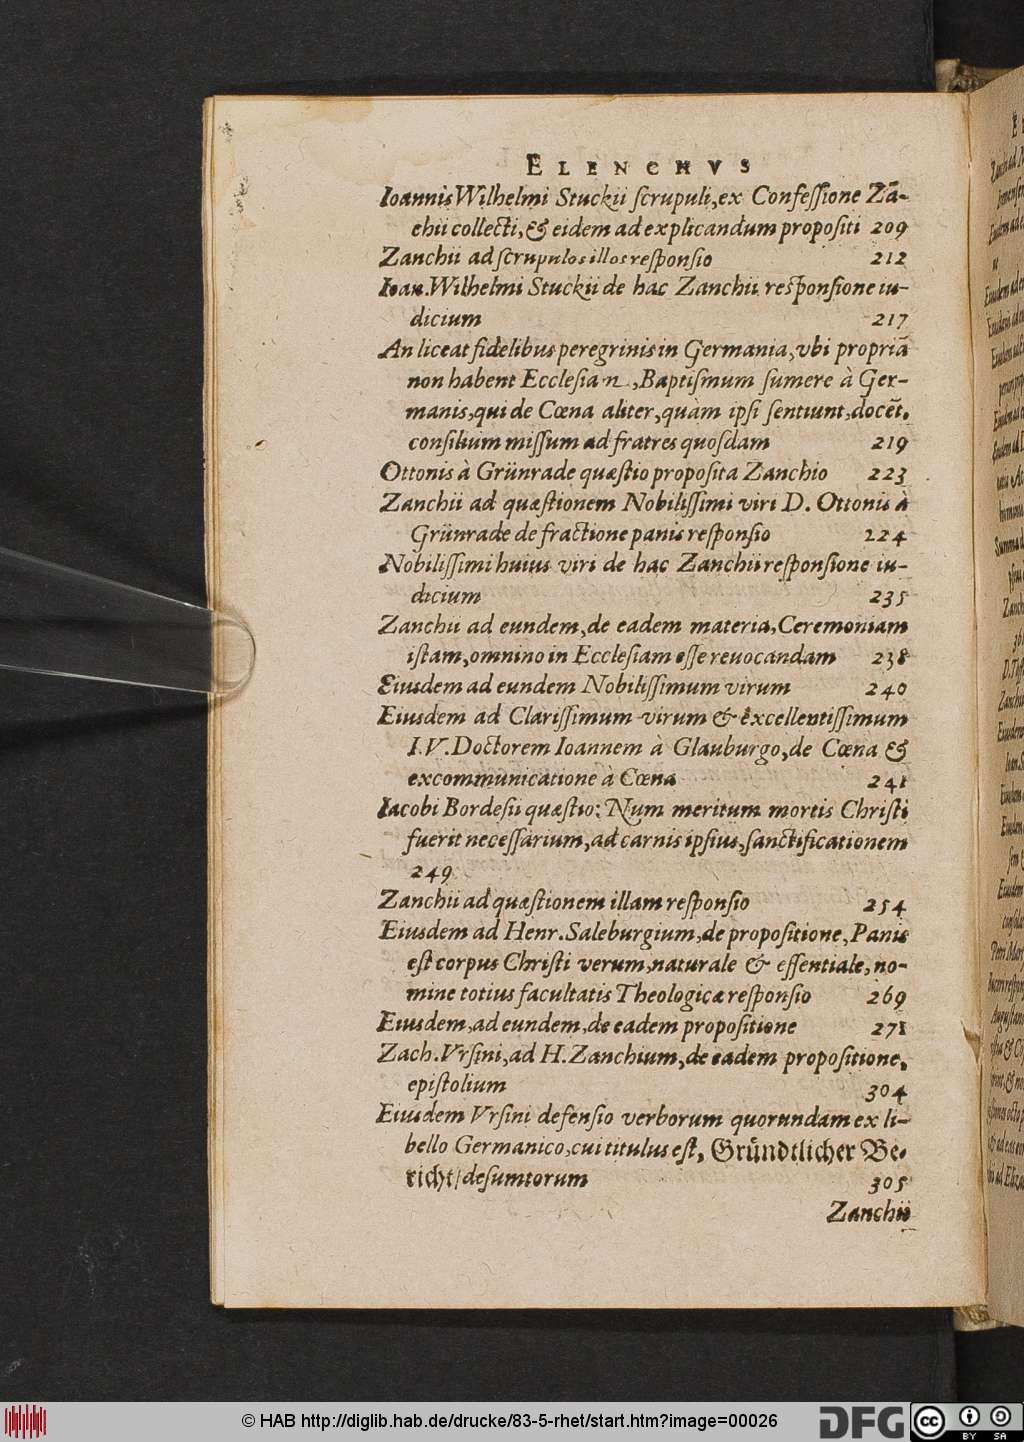 ELENCHVS
Ioannis Wilhelmi Stuckii ſcrupuli, ex Confeſſione Zā-
chii collecti, & eidem ad explicandum propoſiti 209
Zanchii ad ſcrupulos illos reſponſio 212
Ioan. Wilhelmi Stuckii de hac Zanchii reſponſione iu-
dicium 217
An liceat fidelibus peregrinis in Germania, vbi propriā
non habent Eccleſian, Baptiſmum ſumere à Ger-
manis, qui de Cœna aliter, quàm ipſi ſentiunt, docēt,
conſilium miſſum ad fratres quoſdam 219
Ottonis à Grünrade quæſtio propoſita Zanchio 223
Zanchii ad quæſtionem Nobiliſſimi viri D. Ottonis à
Grünrade de fractione panis reſponſio 224
Nobiliſſimi huius viri de hac Zanchii reſponſione iu-
dicium 235
Zanchii ad eundem, de eadem materia, Ceremoniam
iſtam, omnino in Eccleſiam eſſe reuocandam 238
Eiusdem ad eundem Nobiliſſimum virum 240
Eiusdem ad Clariſſimum virum & excellentiſſimum
I.V. Doctorem Ioannem à Glauburgo, de Cœna &
excommunicatione à Cœna 241
Iacobi Bordeſii quæſtio: Num meritum mortis Chriſti
fuerit neceſſarium, ad carnis ipſius, ſanctificationem
249
Zanchii ad quæſtionem illam reſponſio 254
Eiusdem ad Henr. Saleburgium, de propoſitione, Panis
eſt corpus Chriſti verum, naturale & eſſentiale, no-
mine totius facultatis Theologicæ reſponſio 269
Eiusdem, ad eundem, de eadem propoſitione 271
Zach. Vrſini, ad H. Zanchium, de eadem propoſitione,
epiſtolium 304
Eiusdem Vrſini defenſio verborum quorundam ex li-
bello Germanico, cui titulus eſt, Gründtlicher Be-
richt/ deſumtorum 305
Zanchii
© HAB http://diglib.hab.de/drucke/83-5-rhet/start.htm?image=00026
DFG
cc
BY SA